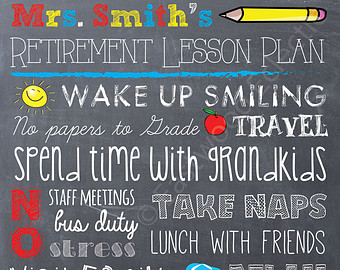 Mrs. Smith's
RETIREMENT LESSON PLAN
WAKE UP SMILING
No papers to Grade TRAVEL
spend time with grandkids
NO
STAFF MEETINGS
bus duty
stress
TAKE NAPS
LUNCH WITH FRIENDS